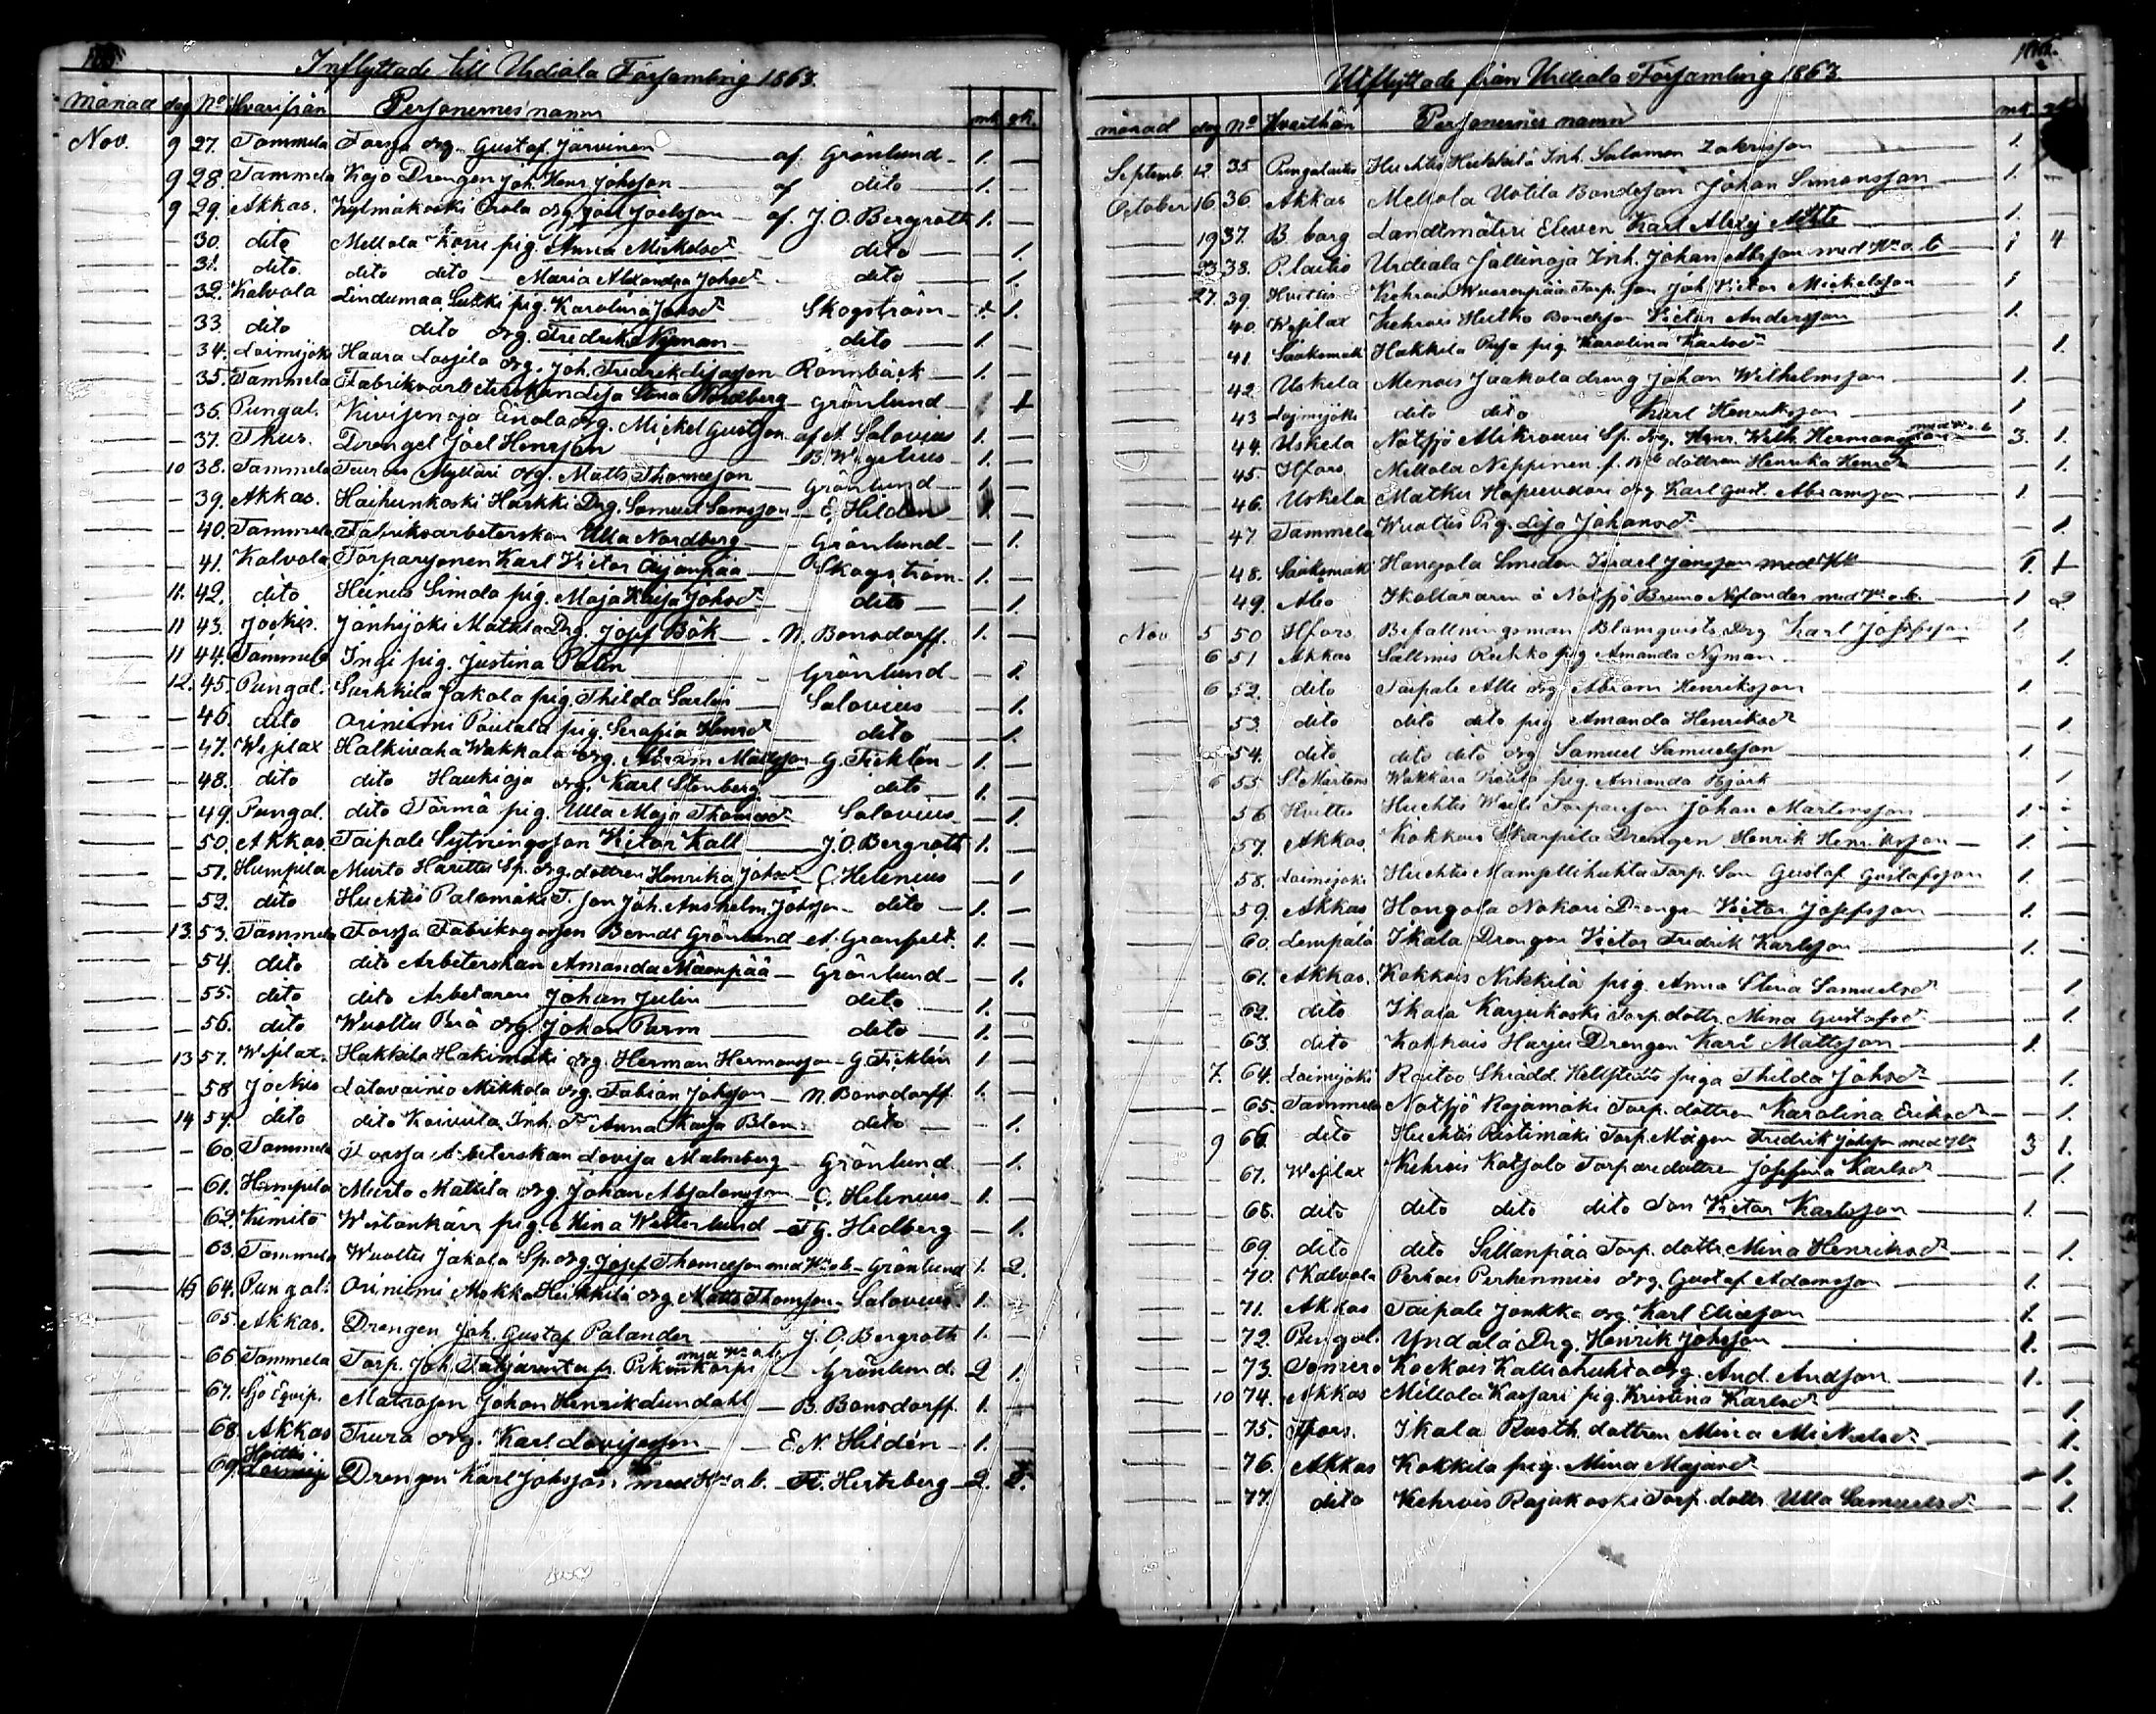 Inflyttade till Urdiala Församling 1863.
Månad dag No Hvarifrån Personernes namn mk qk.
Nov. 9 27. Tammela Forssa drg. Gustaf Järvinen af Grönlund 1. —
9 28. Tammela Kojo Drengen Joh. Henr. Johsson af dito 1. —
9 29. Akkas. Kylmäkoski Erola drg. Joel Joelsson af J. O. Bergroth 1. —
30. dito Mellola Korri pig. Anna Mickelsdr dito — 1.
31. dito. dito dito Maria Alexandra Johsdr dito — 1.
32. Kalvola Lindumaa pig. Karolina Johsdr Skogström 1.
33. dito dito drg. Fredrik Nyman dito 1. —
34. Loimijoki Haara Lassila drg. Joh. Fredrik Rönnbäck 1. —
35. Tammela Fabriksarbeterskan Lisa Stina Nordberg Grönlund 1
36. Pungal. Kivisenoja Einola drg. Mickel Gustsson af A. Salovius 1. —
37. Thus. Drengel Joel Henrsson B. Wegelius 1. —
10 38. Tammela Myllari drg. Matts Thomasson Grönlund 1 —
39. Akkas. Haihunkoski Harkki Drg. Samuel Samsson E. Hildén 1. —
40. Tammela Fabriksarbeterskan Ulla Nordberg Grönlund — 1.
41. Kalvola Torparsonen Karl Victor Skogström 1. —
11. 42. dito Heinus Simola pig. Maja Kaisa Johsdr dito — 1.
11 43. Jockis. Jänhijoki Mattila Drg. Josef Bök N. Bonsdorff. 1. —
11 44. Tammela Ingi pig. Justina Palin Grönlund — 1.
12. 45. Pungal. Sarkkila Jakola pig. Thilda Sarlin Salovius — 1.
46. dito Oriniemi Poutala pig. Serafia Henrsdr dito — 1.
47. Wesilax Halkivaha Wakkala drg. Abram Mattsson G. Ticklén 1. —
48. dito dito Haukioja drg. Karl Stenberg dito 1. —
49. Pungal. dito Törmä pig. Ulla Maja Thomasdr Salovius — 1.
50. Akkas Taipale Sytningsson Victor Kall J. O. Bergroth 1. —
51. Humpila Murto Sp. drg. dottren Henrika Johsdr C. Helenius — 1
52. dito Huchtis Palomäki T. son Joh. Anshelm Johsson dito 1. —
13. 53. Tammela Forssa Fabriksgossen Berndt Grönlund A. Granfelt. 1. —
54. dito dito Arbeterskan Amanda Mäenpää Grönlund — 1.
55. dito dito Arbetaren Johan Julin dito 1. —
56. dito Wuoltu Perä drg. Johan Parm dito 1. —
13 57. Wesilax. Hakkila Hakimäki drg. Herman Hermansson G. Ticklén 1 —
58 Jockis Latovainio Mikkola drg. Fabian Johsson N. Bonsdorff. 1. —
14 59. dito dito Koivula Inh. dr Anna Kaisa Blom dito — 1.
60. Tammela Forssa Arbeterskan Lovisa Malmberg Grönlund — 1.
61. Humpila Murto Mattila drg. Johan Absalonsson C. Helenius 1. —
62. Kimito Westankärr pig. Mina Westerlund F. G. Hedberg — 1.
63. Tammela Wuoltu Jakola Sp. drg. Josef Thomasson med H: o. b. Grönlund 1. 2.
15 64. Pungal: Oriniemi Mokka Heikkilä drg. Matts Thomsson Salovius 1. —
65. Akkas. Drengen Joh. Gustaf Palander J. O. Bergroth 1. —
med H: o. b.
66 Tammela Torp. Joh. fr. Grönlund. 2 1.
67. Sjö Equip. Matrosen Johan Henrik Lundahl B. Bonsdorff. 1. —
68. Akkas Trura drg. Karl Lovisasson E. N. Hildén 1. —
69. Huittis Drengen Karl Johsson med H: o. b. A. Hertzberg 2. 2.
Utflyttade från Urdiala Församling 1863.
månad dag No Hvarthän Personernes namn mk qk
Septemb. 12 35 Pungalaitio Huchtis Heikkilä Inh. Salomon Zakrisson 1. —
October 16 36. Akkas Mellola Uotila Bondeson Johan Simonsson 1. —
19 37. B. borg Landtmäteri Eleven Karl Alexy 1. —
23 38. P. laitio Urdiala Jallinoja Inh. Johan Abrsson med H: o. b. 1 4
27. 39. Huittis Kehrois Torp. son Joh. Victor Mickelsson 1 —
40. Wesilax Kehrois Huitko Bondeson Victor Andersson 1. —
41. Sääksmäki Hakkila pig. Karolina Karlsdr — 1.
42. Uskela Menois Jaakola dreng Johan Wilhelmsson 1. —
43 Loimijoki dito dito Karl Henriksson 1 —
med H: o. b.
44. Uskela Notsjö Sp. drg. Henr. Wilh. Hermansson 3. 1.
45. Hfors Mellola Neppinen dottren Henrika Henrsdr — 1.
46. Uskela Matku Hapeenoari drg. Karl Gust. Abramsson 1. —
47. Tammela Wuoltis Pig. Lisa Johansdr — 1.
48. Sääksmäki Hongola Smeden Israel Jansson 1. 1
49. Abo å Notsjö Bruno med H: o. b. 1 2
Nov 5 50 Hfors Befallningsman Blomqvists Drg. Karl Josefsson 1. —
6 51 Akkas Salmis Ruhko pig. Amanda Nyman — 1.
6 52. dito Taipale Alli drg. Abram Henriksson 1. —
53. dito dito dito pig. Amanda Henriksdr — 1
54. dito dito dito drg. Samuel Samuelsson 1. —
6 55 St Martens Wakkara pig. Amanda Björk — 1
56 Huittis Huchtis Torparson Johan Martensson 1. —
57. Akkas. Kokkois Skarpila Drengen Henrik Henriksson 1. —
58. Loimijoki Huchtis Torp. Son Gustaf Gustafsson 1. —
59. Akkas Hongola Nokari Drengen Victor Josefsson 1. —
60. Lempälä Ikala Drengen Victor Fredrik Karlsson 1. —
61. Akkas. Kokkois Nikkilä pig. Anna Stina Samuelsdr — 1
62. dito Ikala Karjukoski Torp. dottr. Mina Gustafsdr — 1.
63. dito Kokkois Harju Drengen Karl Mattsson 1. —
7. 64. Loimijoki Raitoo Skrädd. piga Thilda Johsdr — 1.
65. Tammela Notsjö Rajamäki Torp. dottren Karolina Eriksdr — 1.
9 66. dito Huchtis Ristimäki Torp. Mågen Fredrik Johsson med H: o. b. 3 1.
67. Wesilax Kehrois Katsalo Torparedottren Josefina Karlsdr — 1.
68. dito dito dito dito Son Victor Karlsson 1. —
69. dito dito Sillanpää Torp. dottr. Mina Henriksdr — 1.
70. Kalvola Perkois Perhenmies drg. Gustaf Adamsson 1. —
71. Akkas Taipale Jonkka drg. Karl Eliasson 1. —
72. Pungal. Yndälä Drg. Henrik Johsson 1. —
73. Somero Kockois Kalliohuhta drg. And. Andsson 1. —
10 74. Akkas Mellola Kassari pig. Kristina Karlsdr — 1.
75. Hfors. Ikala Rusth. dottren Mina Mickelsdr — 1.
76. Akkas Kokkila pig. Mina Majasdr — 1.
77. dito Kehrois Rajakoski Torp. dottr. Ulla Samuelsdr — 1.